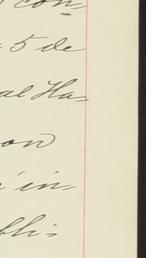 con-
5 de
al Ha-
on
in-
bli-